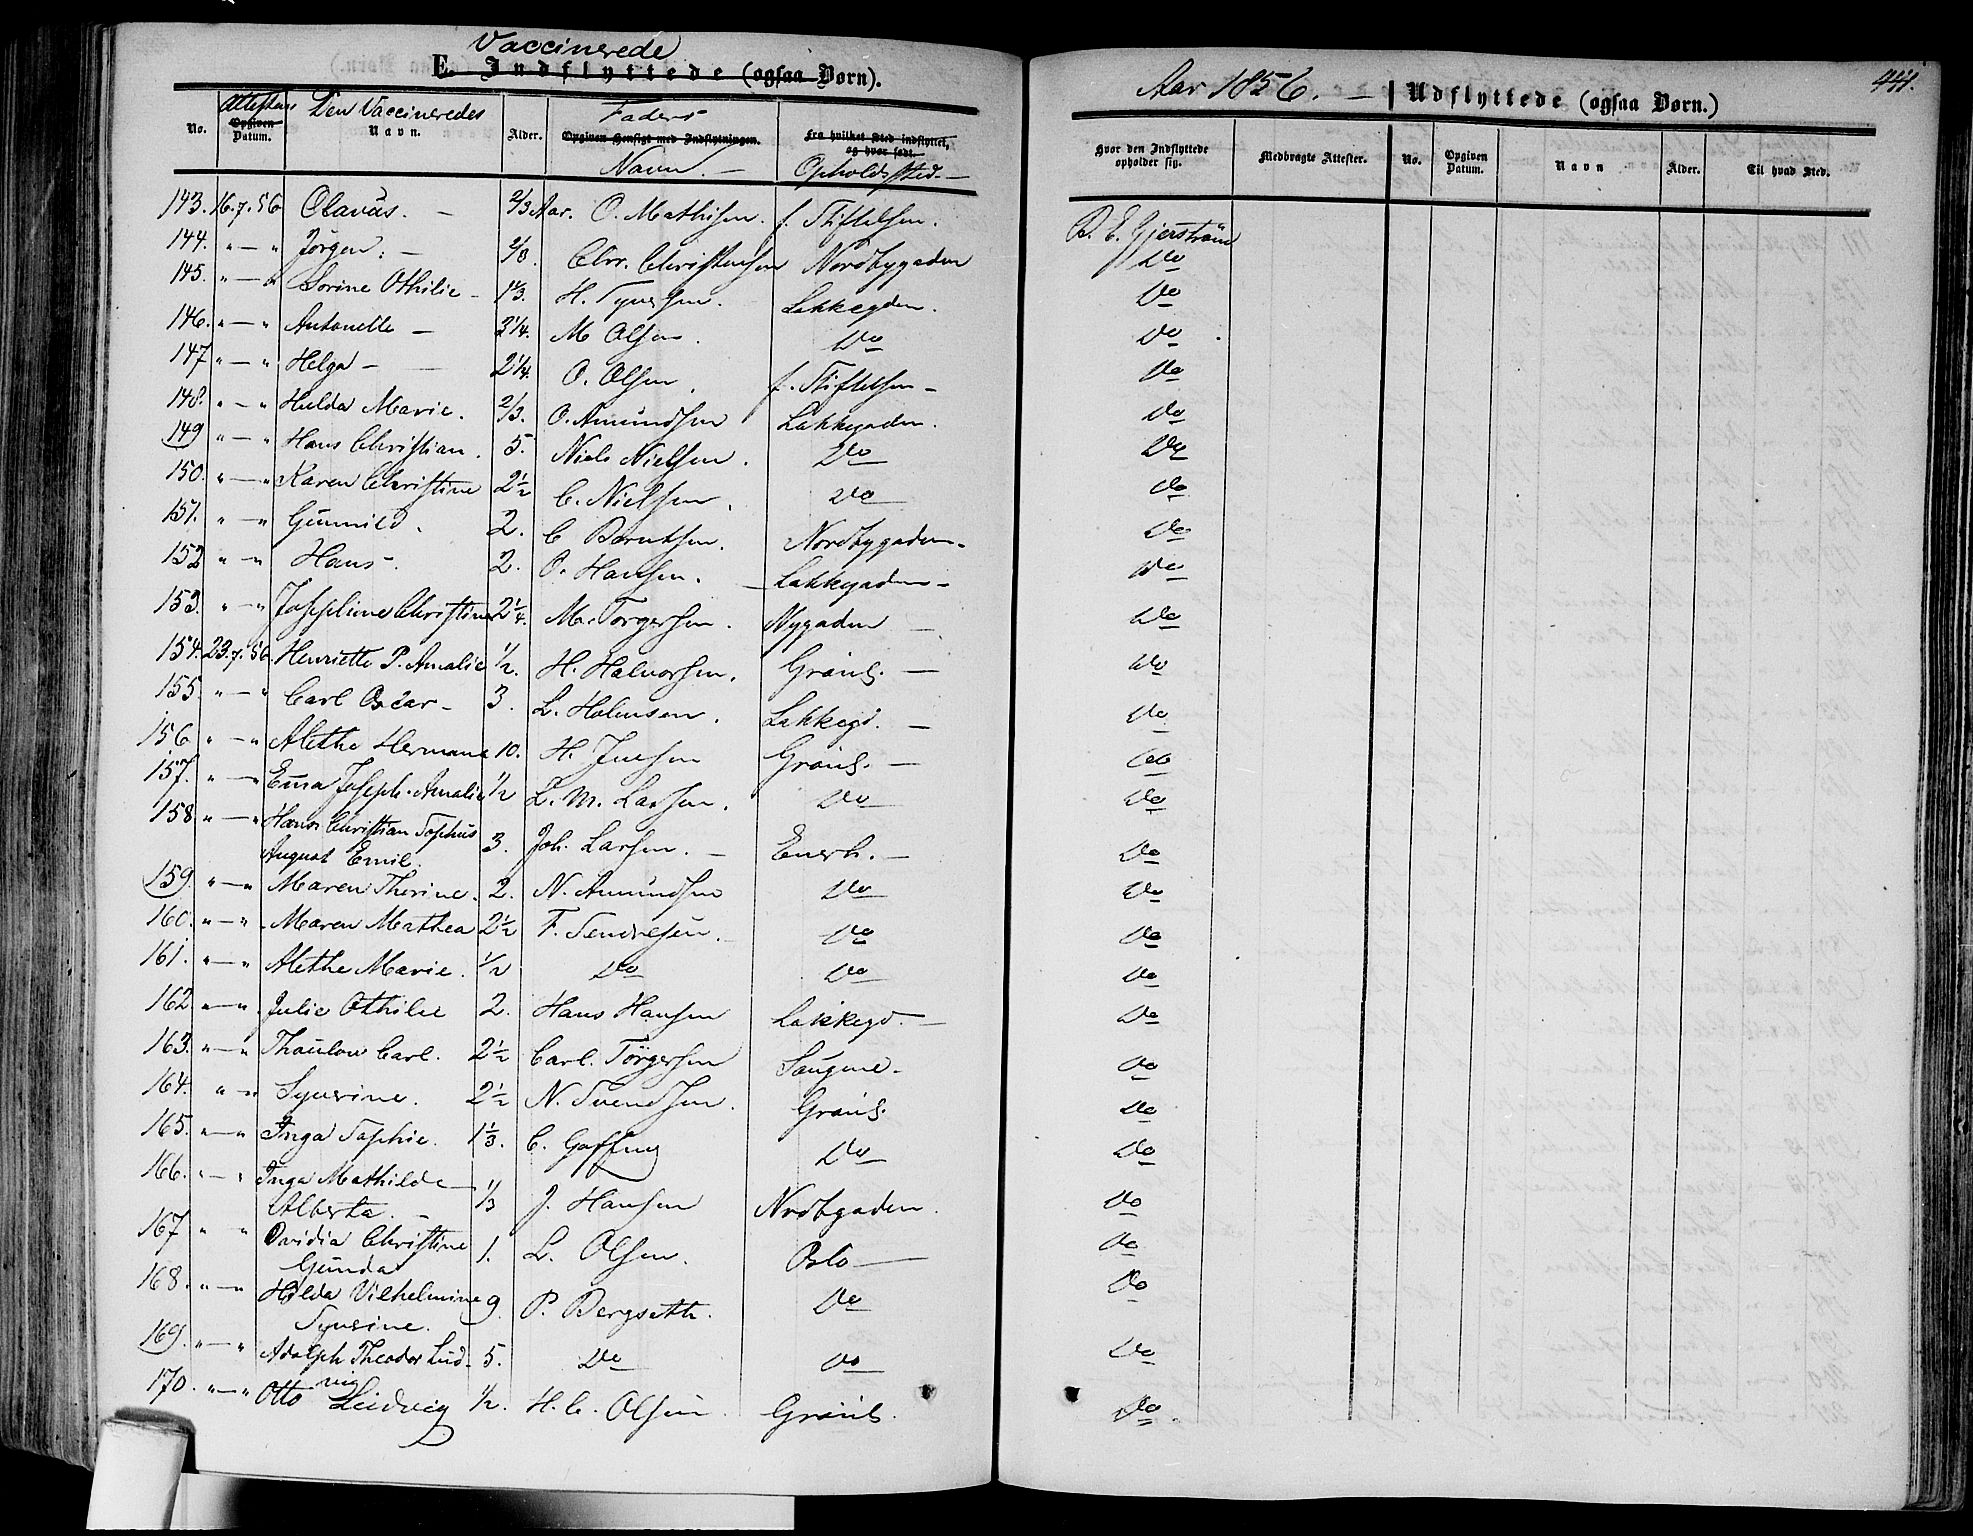 Vaccinerede
E. Indflyttede (ogsaa Børn).
Aar 1856. —
Udflyttede (ogsaa Børn.)
441.
No.
Attestens
Opgiven
Datum.
Den Vaccineredes
Navn.
Alder.
Faders
Opgiven Hensigt med Indflytningen.
Navn. —
Fra hvilket Sted indflyttet,
og hvor født.
Opholdssted. —
Hvor den Indflyttede
opholder sig.
Medbragte Attester.
No.
Opgiven
Datum.
Navn
Alder.
Til hvad Sted.
143. 16.7.56 Olavus. — 2/3 Aar. O. Mathisen. f. Stiftelsen. B. E. Gjerstrøm
144. " — " Jørgen. — Chr. Christensen Nordbygaden Do
145. " — " Sorine Othilie — 1 1/3. H. Syversen. Lakkegden. Do
146. " — " Antonette — 3 1/4. M Olsen. Do Do
147 " — " Helga — 2 1/4. O. Olsen. f. Stiftelsen — Do
148. " — " Hulda Marie. 2/3. O. Amundsen Lakkegaden. Do
149 " — " Hans Christian. 5. Niels Nielsen. Do Do
150. " — " Karen Christine 2 1/2 C. Nielsen. Do Do
151. " — " Gunnild. 2. C Berntsen. Nordbygaden — Do
152 " — " Hans. 2. O. Hansen. — Lakkegaden — Do
153. " — " Josephine Christine 2 1/4. M. Torgersen. Nygaden — Do
154. 23.7.56. Henriette P. Amalie 1/2. H. Halvorsen. Grønl. — Do
155. " — " Carl Oscar — 3. L. Halvsen. Lakkegd. — Do
156 " — " Alethe Hermana 10. H. Jensen Grønl. — Do
157. " — " Ema Joseph. Amalie 1/2 L. M. Larsen. Do Do
158 " — " Hans Christian Sophus
August Emil. 3. Joh. Larsen. — Enerh. — Do
159. " — " Maren Therine. 2. N. Amundsen Do Do
160. " — " Maren Mathea 2 1/2 F. Do Do
161. " — " Alethe Marie. 1/2 Do Do Do
162 " — " Julie Othilie 2. Hans Hansen Lakkegd. — Do
163. " — " Thaulow Carl. 2 1/2 Carl. Törgersen Saugene — Do
164. " — " Syverine. 2 1/2 N. Svendsen. Grønl. Do
165. " — " Inga Sophie. 1 1/3. C. Do Do
166. " — " Inga Mathilde
Alberta. — 1/3 J. Hansen Nordbgaden. Do
167 " " Ovidia Christine
Gunda 1. L. Olsen. Oslo — Do
168. " — " Hilda Vilhelmine
Syverine. 9. P. Bergseth. Do Do
169. " — " Adolph Theodor Lud-
vig 5. Do Do Do
170. " — " Otto Ludvig 1/2. H. C. Olsen. Grønl. Do.